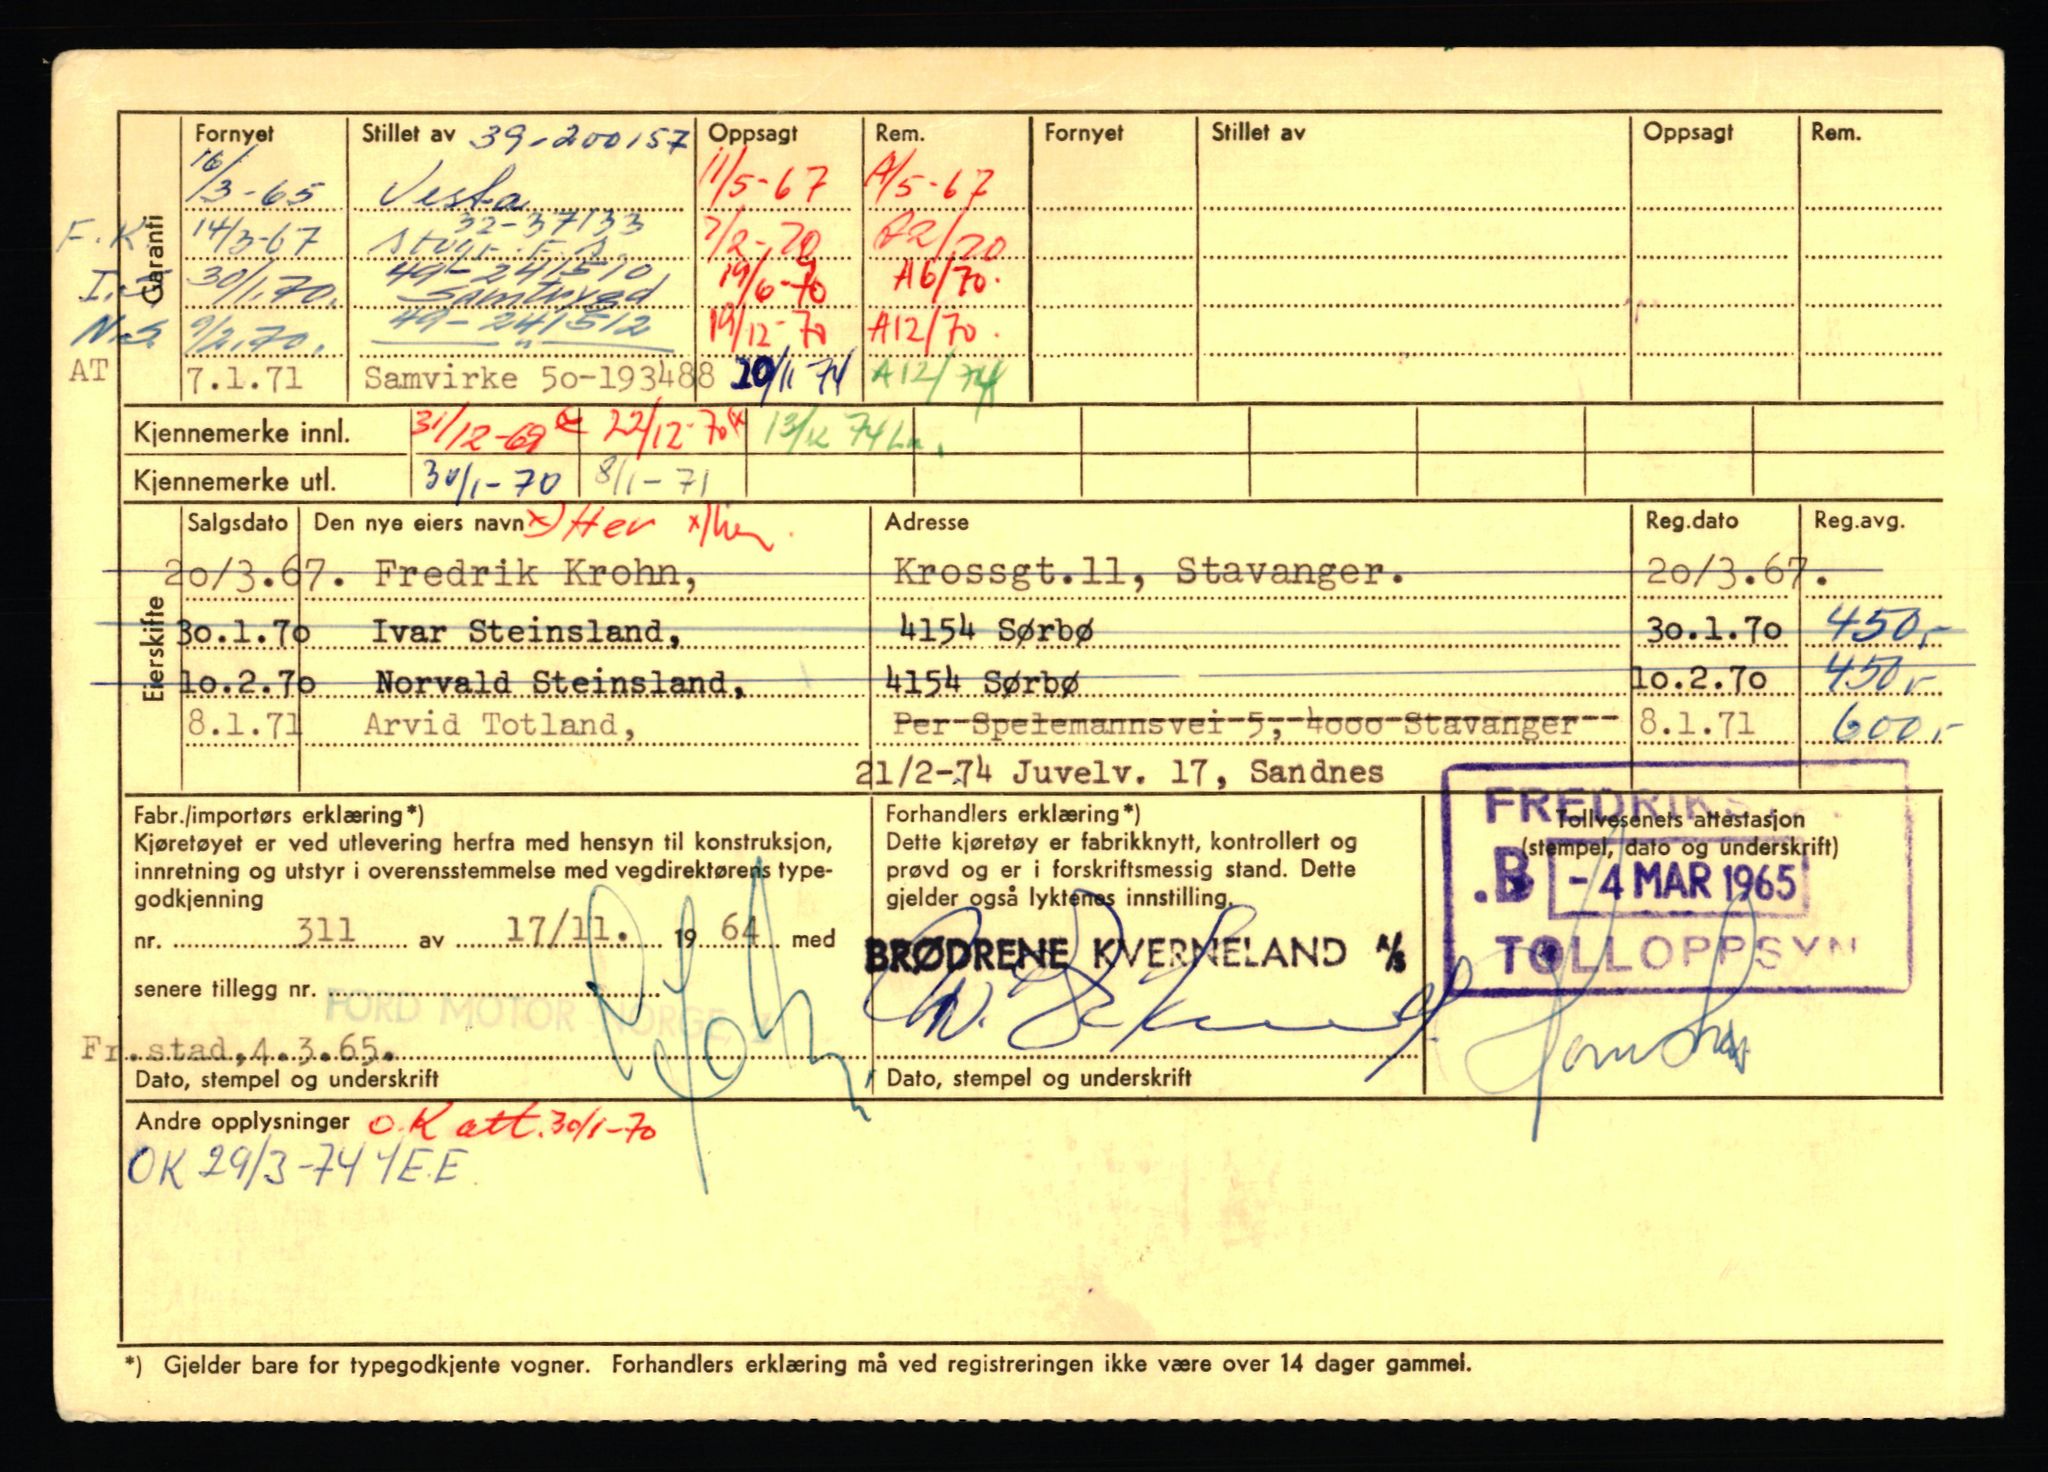 Garanti
Fornyet Stillet av 39-200157 Oppsagt Rem. Fornyet Stillet av Oppsagt Rem.
16/3-65 Vesta 11/5-67 A/5-67
F.K. 14/3-67 32-37133 7/2-70 A2/70
I.S. 30/1.70. 49-241510 Samtrygd 19/6-70 A6/70.
N.S. 9/2.70. 49-241512 19/12-70 A12/70.
AT 7.1.71 Samvirke 50-193488 20/11 74 A12/74
Kjennemerke innl. 31/12-69 22/12-70 13/12 74
Kjennemerke utl. 30/1-70 8/1-71
Eierskifte
Salgsdato Den nye eiers navn x) Her x) Adresse Reg.dato Reg.avg.
20/3.67. Fredrik Krohn, Krossgt.11, Stavanger. 20/3.67.
30.1.70 Ivar Steinsland, 4154 Sørbø 30.1.70 450,-
10.2.70 Norvald Steinsland, 4154 Sørbø 10.2.70 450,-
8.1.71 Arvid Totland, Per Spelemannsvei 5, 4000 Stavanger 8.1.71 600,-
21/2-74 Juvelv. 17, Sandnes
Fabr./importørs erklæring*)
Kjøretøyet er ved utlevering herfra med hensyn til konstruksjon,
innretning og utstyr i overensstemmelse med vegdirektørens type-
godkjenning
nr. 311 av 17/11. 1964 med
senere tillegg nr.
FORD MOTOR NORGE
Fr.stad,4.3.65.
Dato, stempel og underskrift
Forhandlers erklæring*)
Dette kjøretøy er fabrikknytt, kontrollert og
prøvd og er i forskriftsmessig stand. Dette
gjelder også lyktenes innstilling.
BRØDRENE KVERNELAND A/S
Dato, stempel og underskrift
FREDRIKS
Tollvesenets attestasjon
(stempel, dato og underskrift)
.B -4 MAR 1965
TOLLOPPSYN
Andre opplysninger O.K att. 30/1-70
OK 29/3-74
*) Gjelder bare for typegodkjente vogner. Forhandlers erklæring må ved registreringen ikke være over 14 dager gammel.